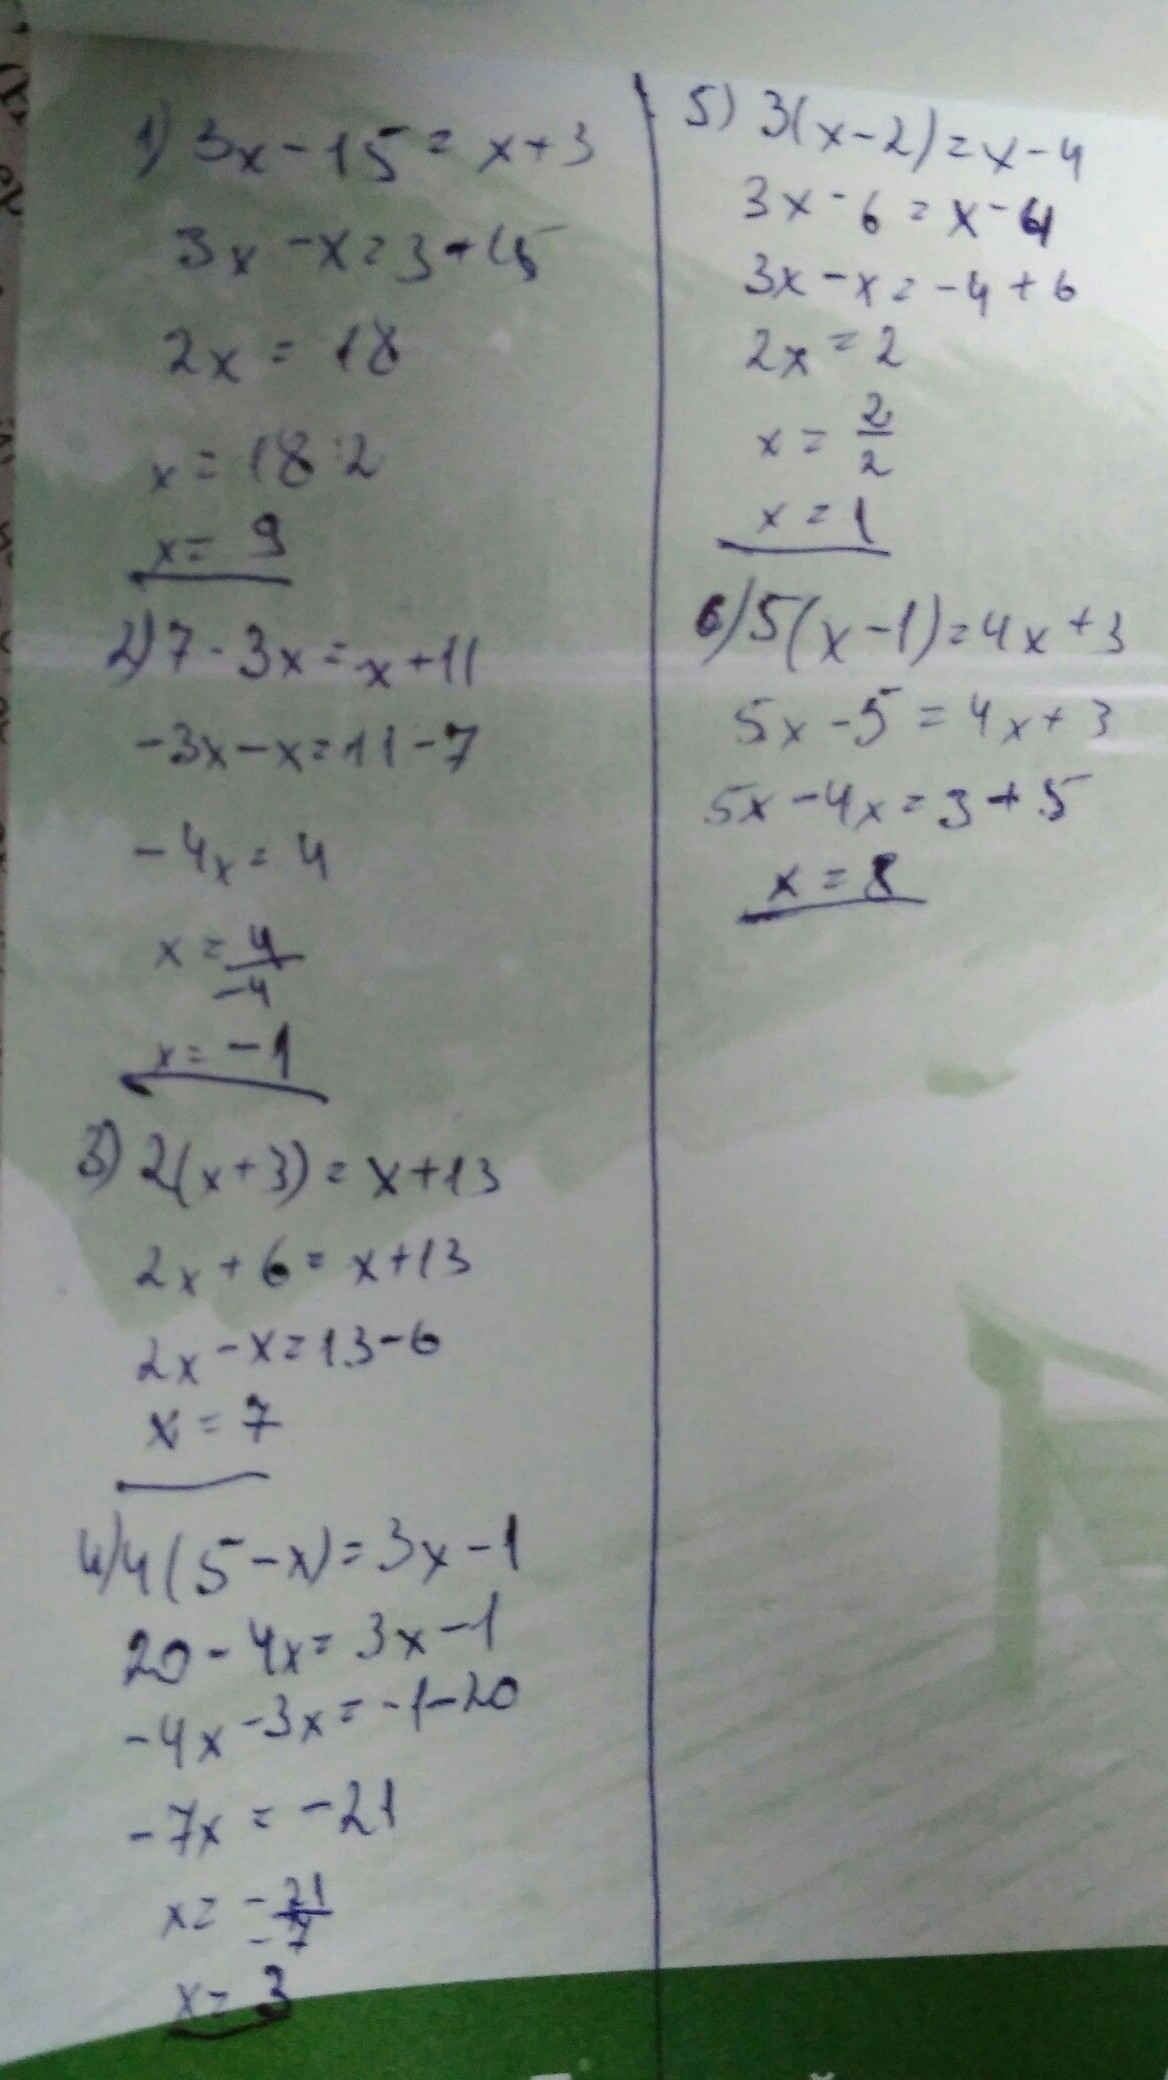 1) 3x - 15 = x + 3
3x - x = 3 + 15
2x = 18
x = 18 : 2
x = 9
2) 7 - 3x = x + 11
-3x - x = 11 - 7
-4x = 4
x = 4/-4
x = -1
3) 2(x + 3) = x + 13
2x + 6 = x + 13
2x - x = 13 - 6
x = 7
4) 4(5 - x) = 3x - 1
20 - 4x = 3x - 1
-4x - 3x = -1 - 20
-7x = -21
x = -21/-7
x = 3
5) 3(x - 2) = x - 4
3x - 6 = x - 4
3x - x = -4 + 6
2x = 2
x = 2/2
x = 1
6) 5(x - 1) = 4x + 3
5x - 5 = 4x + 3
5x - 4x = 3 + 5
x = 8